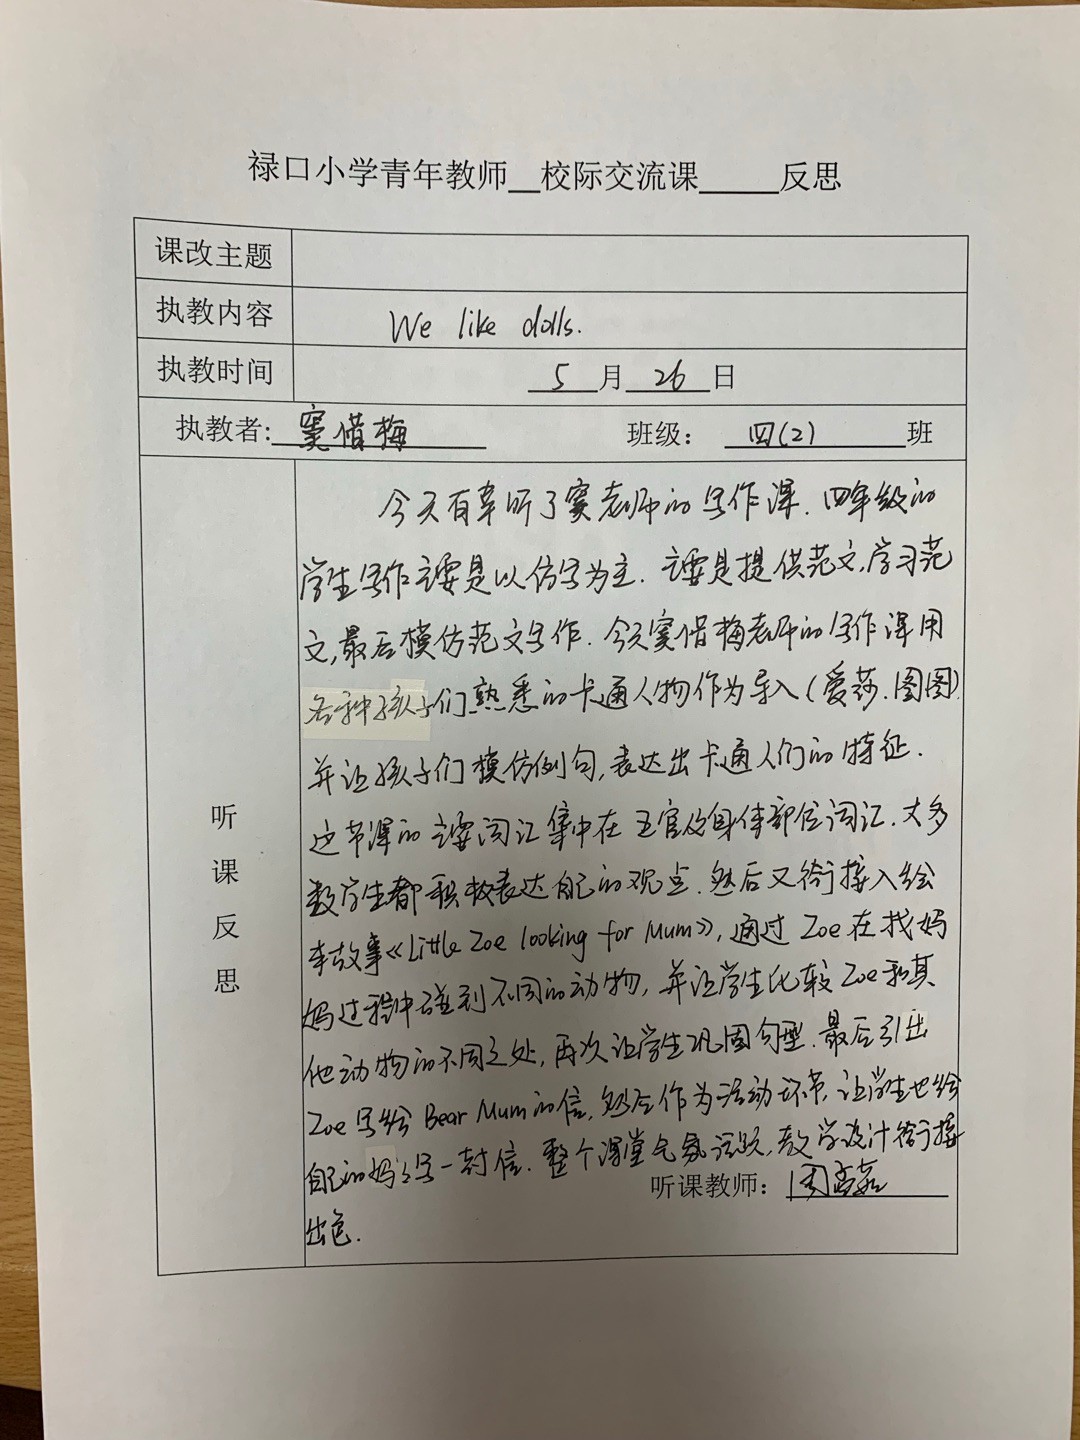 禄口小学青年教师__校际交流课_____反思
课改主题
执教内容 We like dolls.
执教时间 5 月 26 日
执教者: 窦惜梅 班级: 四(2) 班
听课反思
今天有幸听了窦老师的写作课. 四年级的
学生写作主要是以仿写为主. 主要是提供范文,学习范
文,最后模仿范文写作. 今天窦惜梅老师的写作课用
各种孩子们熟悉的卡通人物作为导入(爱莎.图图)
并让孩子们模仿例句,表达出卡通人们的特征.
这节课的主要词汇集中在五官及身体部位词汇.大多
数学生都积极表达自己的观点.然后又衔接入绘
本故事《Little Zoe looking for Mum》,通过Zoe在找妈
妈过程中碰到不同的动物,并让学生比较Zoe和其
他动物的不同之处,再次让学生巩固句型.最后引出
Zoe写给Bear Mum的信,然后作为活动环节,让学生也给
自己的妈妈写一封信.整个课堂气氛活跃,教学设计衔接
听课教师: 周
出色.